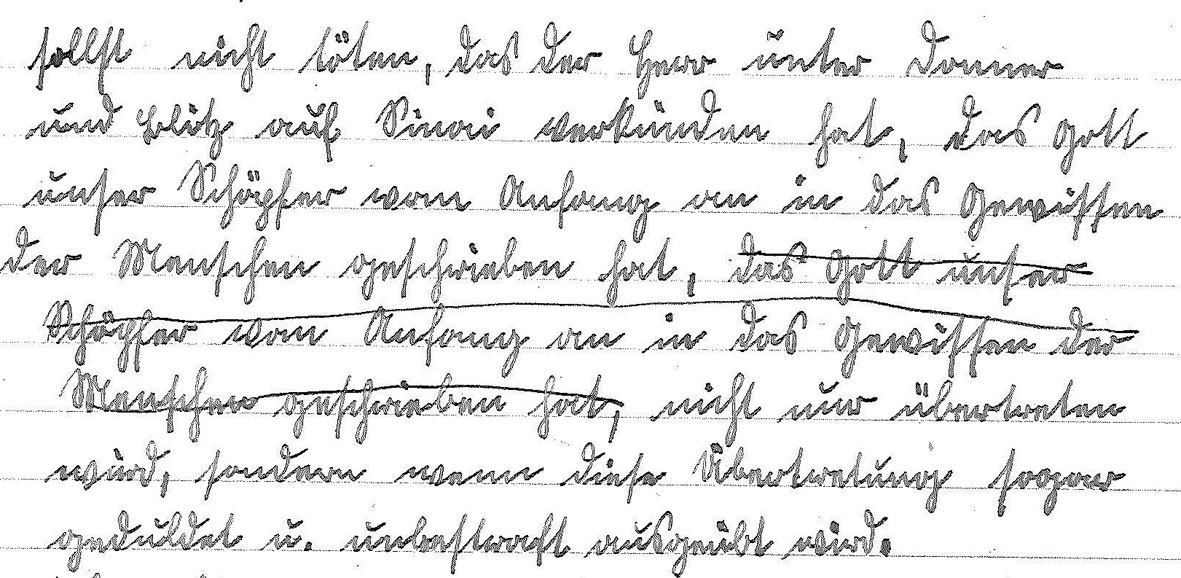 sollst nicht töten, das der Herr unter Donner
und Blitz auf Sinai verkünden hat, das Gott
unser Schöpfer vom Anfang an in das Gewissen
der Menschen geschrieben hat, das Gott unser
Schöpfer vom Anfang an in das Gewissen der
Menschen geschrieben hat, nicht nur übertreten
wird, sondern wenn diese Übertretung sogar
geduldet u. unbestraft ausgeübt wird.